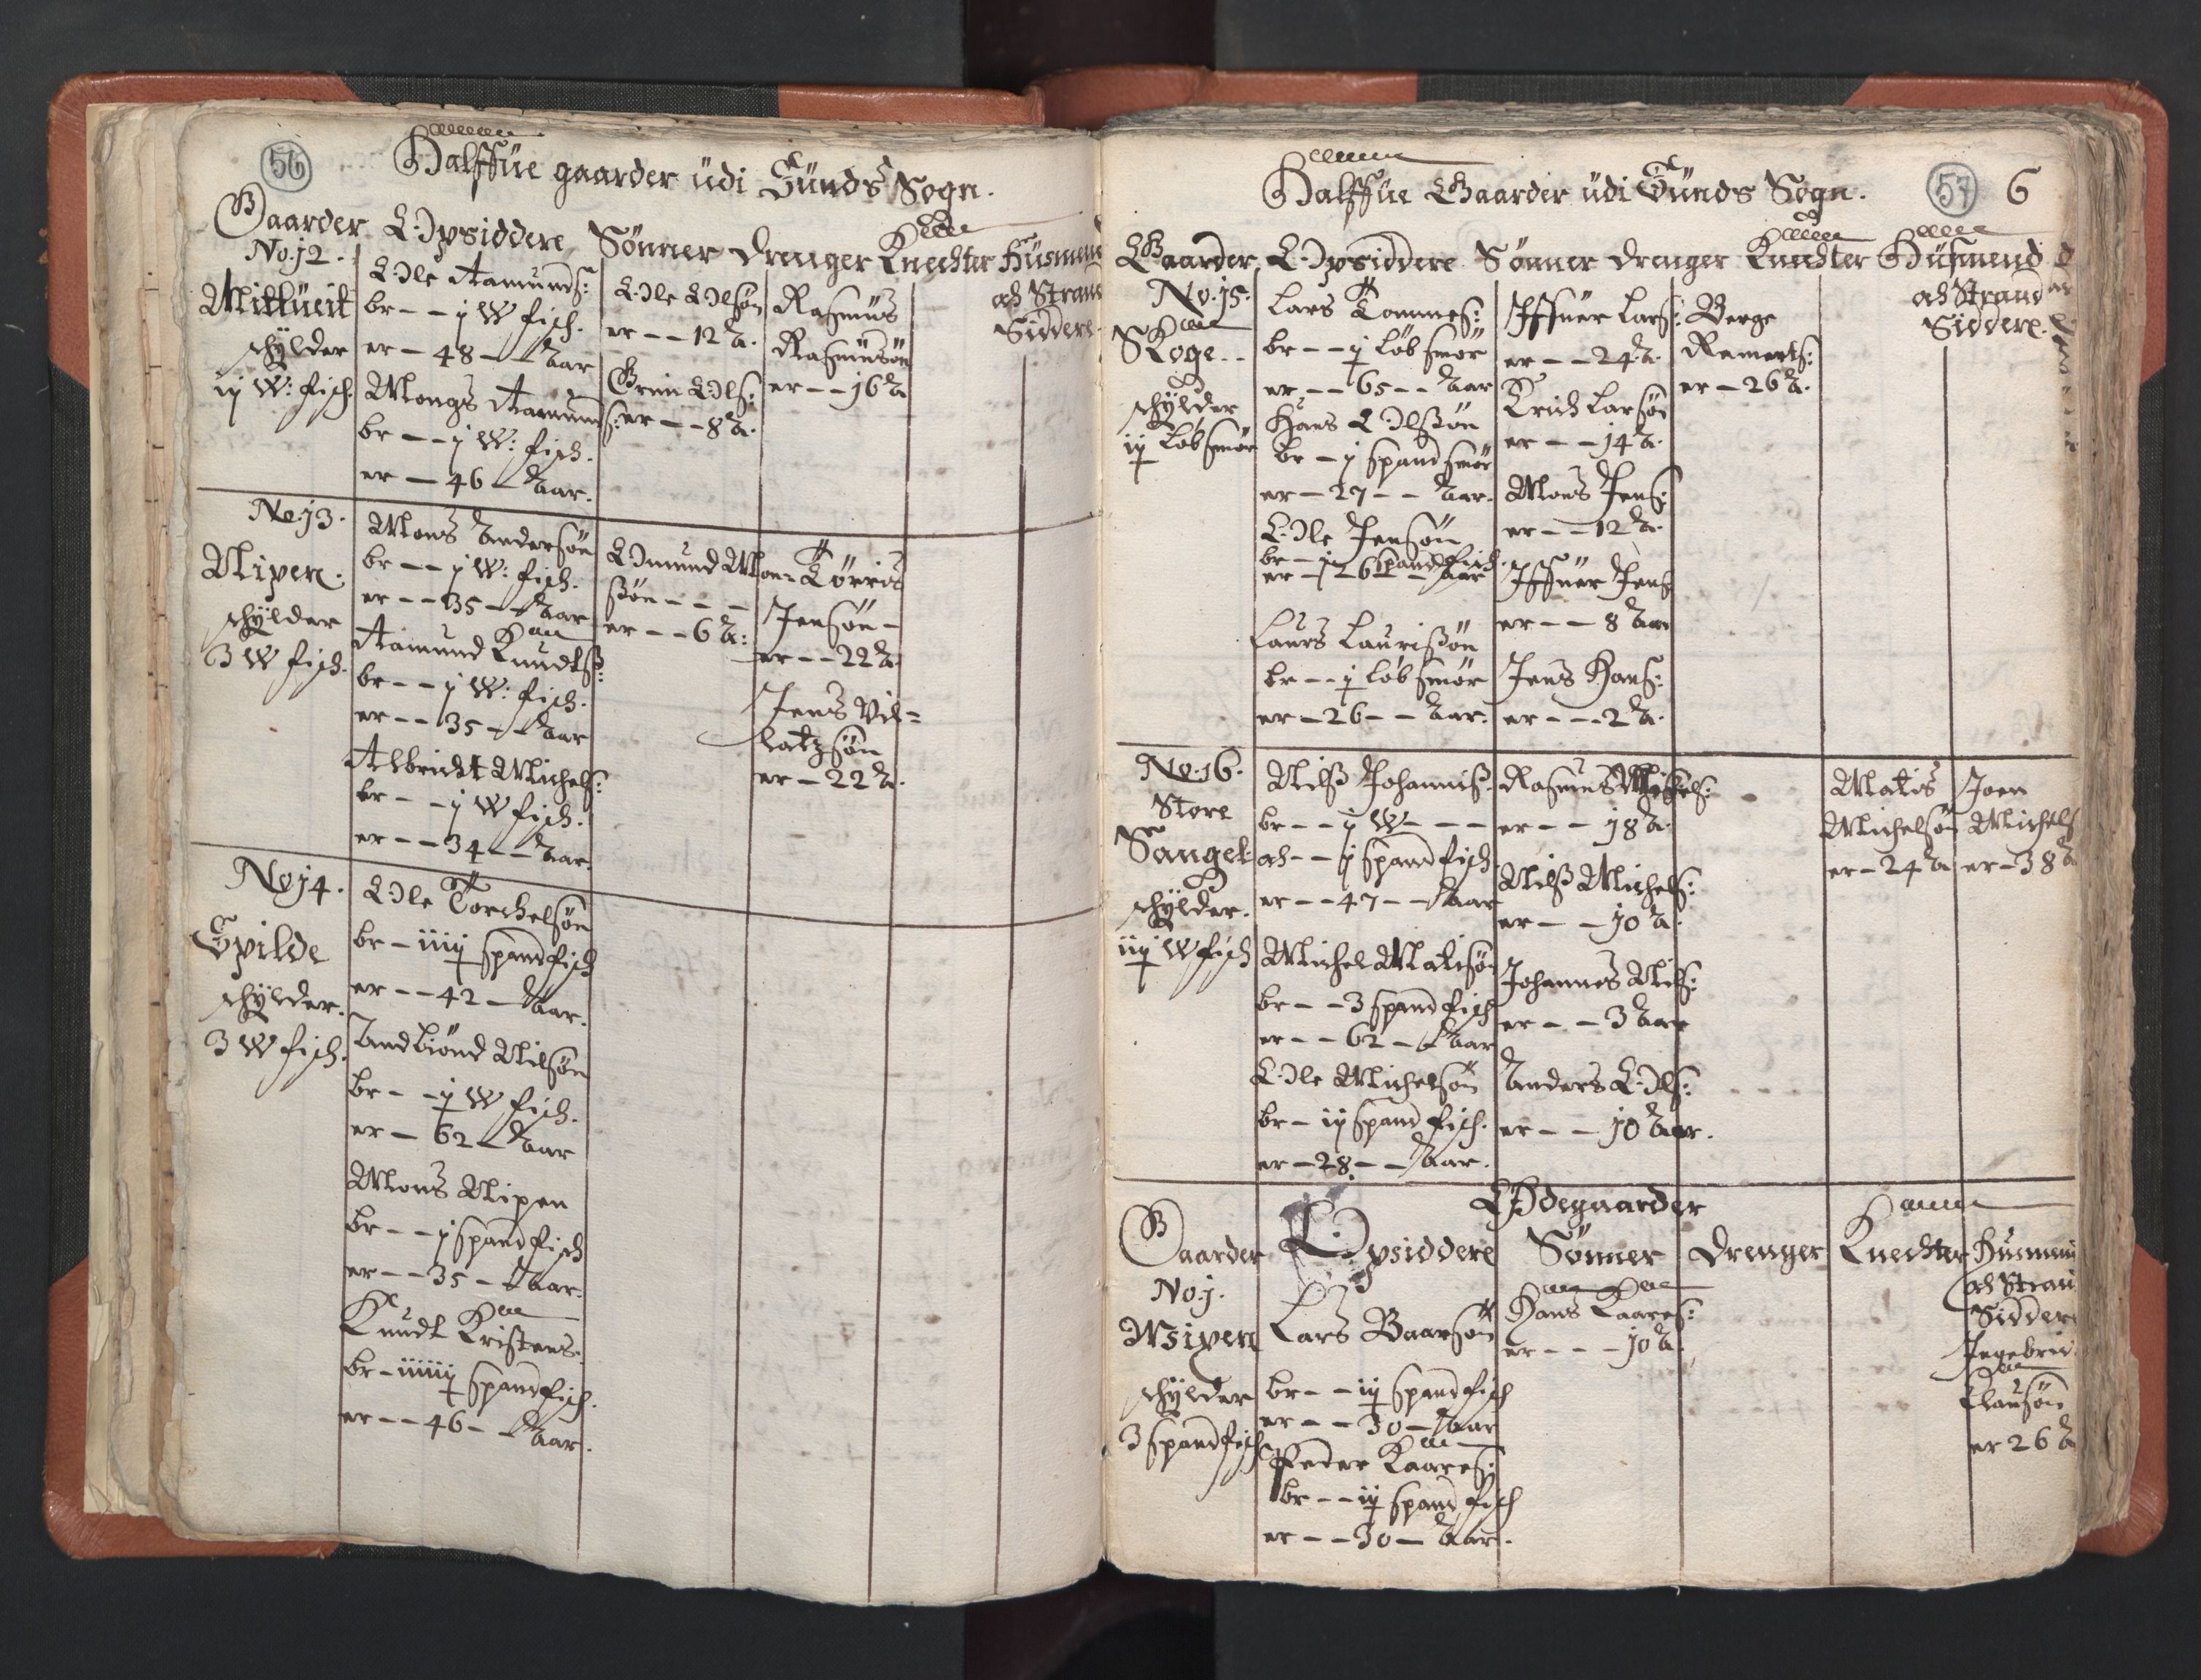 56
Halffüe gaarder üdi Sünds Sogn.
Gaarder Opsiddere Sønner Drenger Knechter Hüsmend
och Strand
Siddere.
No. 12.
Mitlüeit
schÿlder
ij W: fisch.
Ole Aamunds:
br - - j W fisch.
er - 48 - Aar
Mongs Aamunds:
br - - j W: fisch.
er - 46 - Aar.
Ole Olsøn
er - - 12 A.
Grim Ols:
er - - 8 A.
Rasmüs
Rasmüsøn
er - - 16 A
No. 13.
Nipen.
schÿlder
3 W fisch.
Mons Andersøn
br - - j W: fisch.
er - - 35 - Aar
Aamund Knudtß:
br - - j W: fisch.
er - - 35 - Aar
Albricht Michels:
br - - j W fisch.
er - - 34 - - Aar.
Omund Mon=
ßøn - - -
er - - 6 A:
Tørris
Jensøn -
er - - 22 A.
Jens Vil=
latzsøn
er - 22 A.
No 14.
Spilde
schÿlder.
3 W fisch.
Ole Torchelsøn
br - iiij spand fisch
er - - 42 - Aar.
Andbiönd Nilsøn
br - - j W fisch.
er - 62 - Aar
Mons Nipen
br - - j spand fisch
er - - 35 - Aar.
Knudt Kristens.
br - iiiiij spand fisch.
er - - 46 - Aar.
57 6
Halffüe Gaarder üdi Sünds Sogn.
Gaarder Opsiddere Sønner Drenger Knechter Hüsmend
och Strand
Siddere.
No. 15.
Skoge - -
schÿlder
iij løb smør
Lars Tommes:
br - - j løb smør
er - - 65 - - Aar
Hans Olßøn
br - j spand smør
er - 27 - - Aar.
Ole Jensøn
br - j spand fisch.
er - 26 - Aar
Laurs Laurißøn
br - - j løb smør
er - 26 - - Aar.
Iffuer Lars:
er - - 24 A.
Erich Larsøn
er - - 14 A.
Mons Jens:
er - - 12 A.
Iffuer Jens
er - - 8 Aar
Jens Hans:
er - - - 2 A.
Berge
Remerts:
er - 26 A.
No. 16.
Store
Sangel:
schÿlder.
iij W fisch
Nilß Johanniß.
br - - j W - - -
och - - j spand fisch
er - - 47 - - Aar
Michel Matisøn
br - - 3 spand fisch
er - - 62 - Aar
Ole Michelsøn
br - ij spand fisch.
er - 28 - - Aar.
Rasmus Michels:
er - - 18 A.
Nilß Michels:
er - - 10 A.
Johannes Nils:
er - - 3 Aar
Anders Ols:
er - - 10 Aar.
Matis
Michelsøn
er - 24 A
Joen
Michels
er - 38 A
Ødegaarder
Gaarder Opsiddere Sønner Drenger Knechter Husmen
och Stran
Sidder
No. j.
schÿlder
3 spand fisch
Lars Baarsøn
br - - ij spand fisch
er - - 30 - Aar
Peder Kaares:
br - - ij spand fisch
er - - 30 - Aar.
Hans Kaares:
er - - - 10 A.
Ingebric
Clausøn
er 26 A